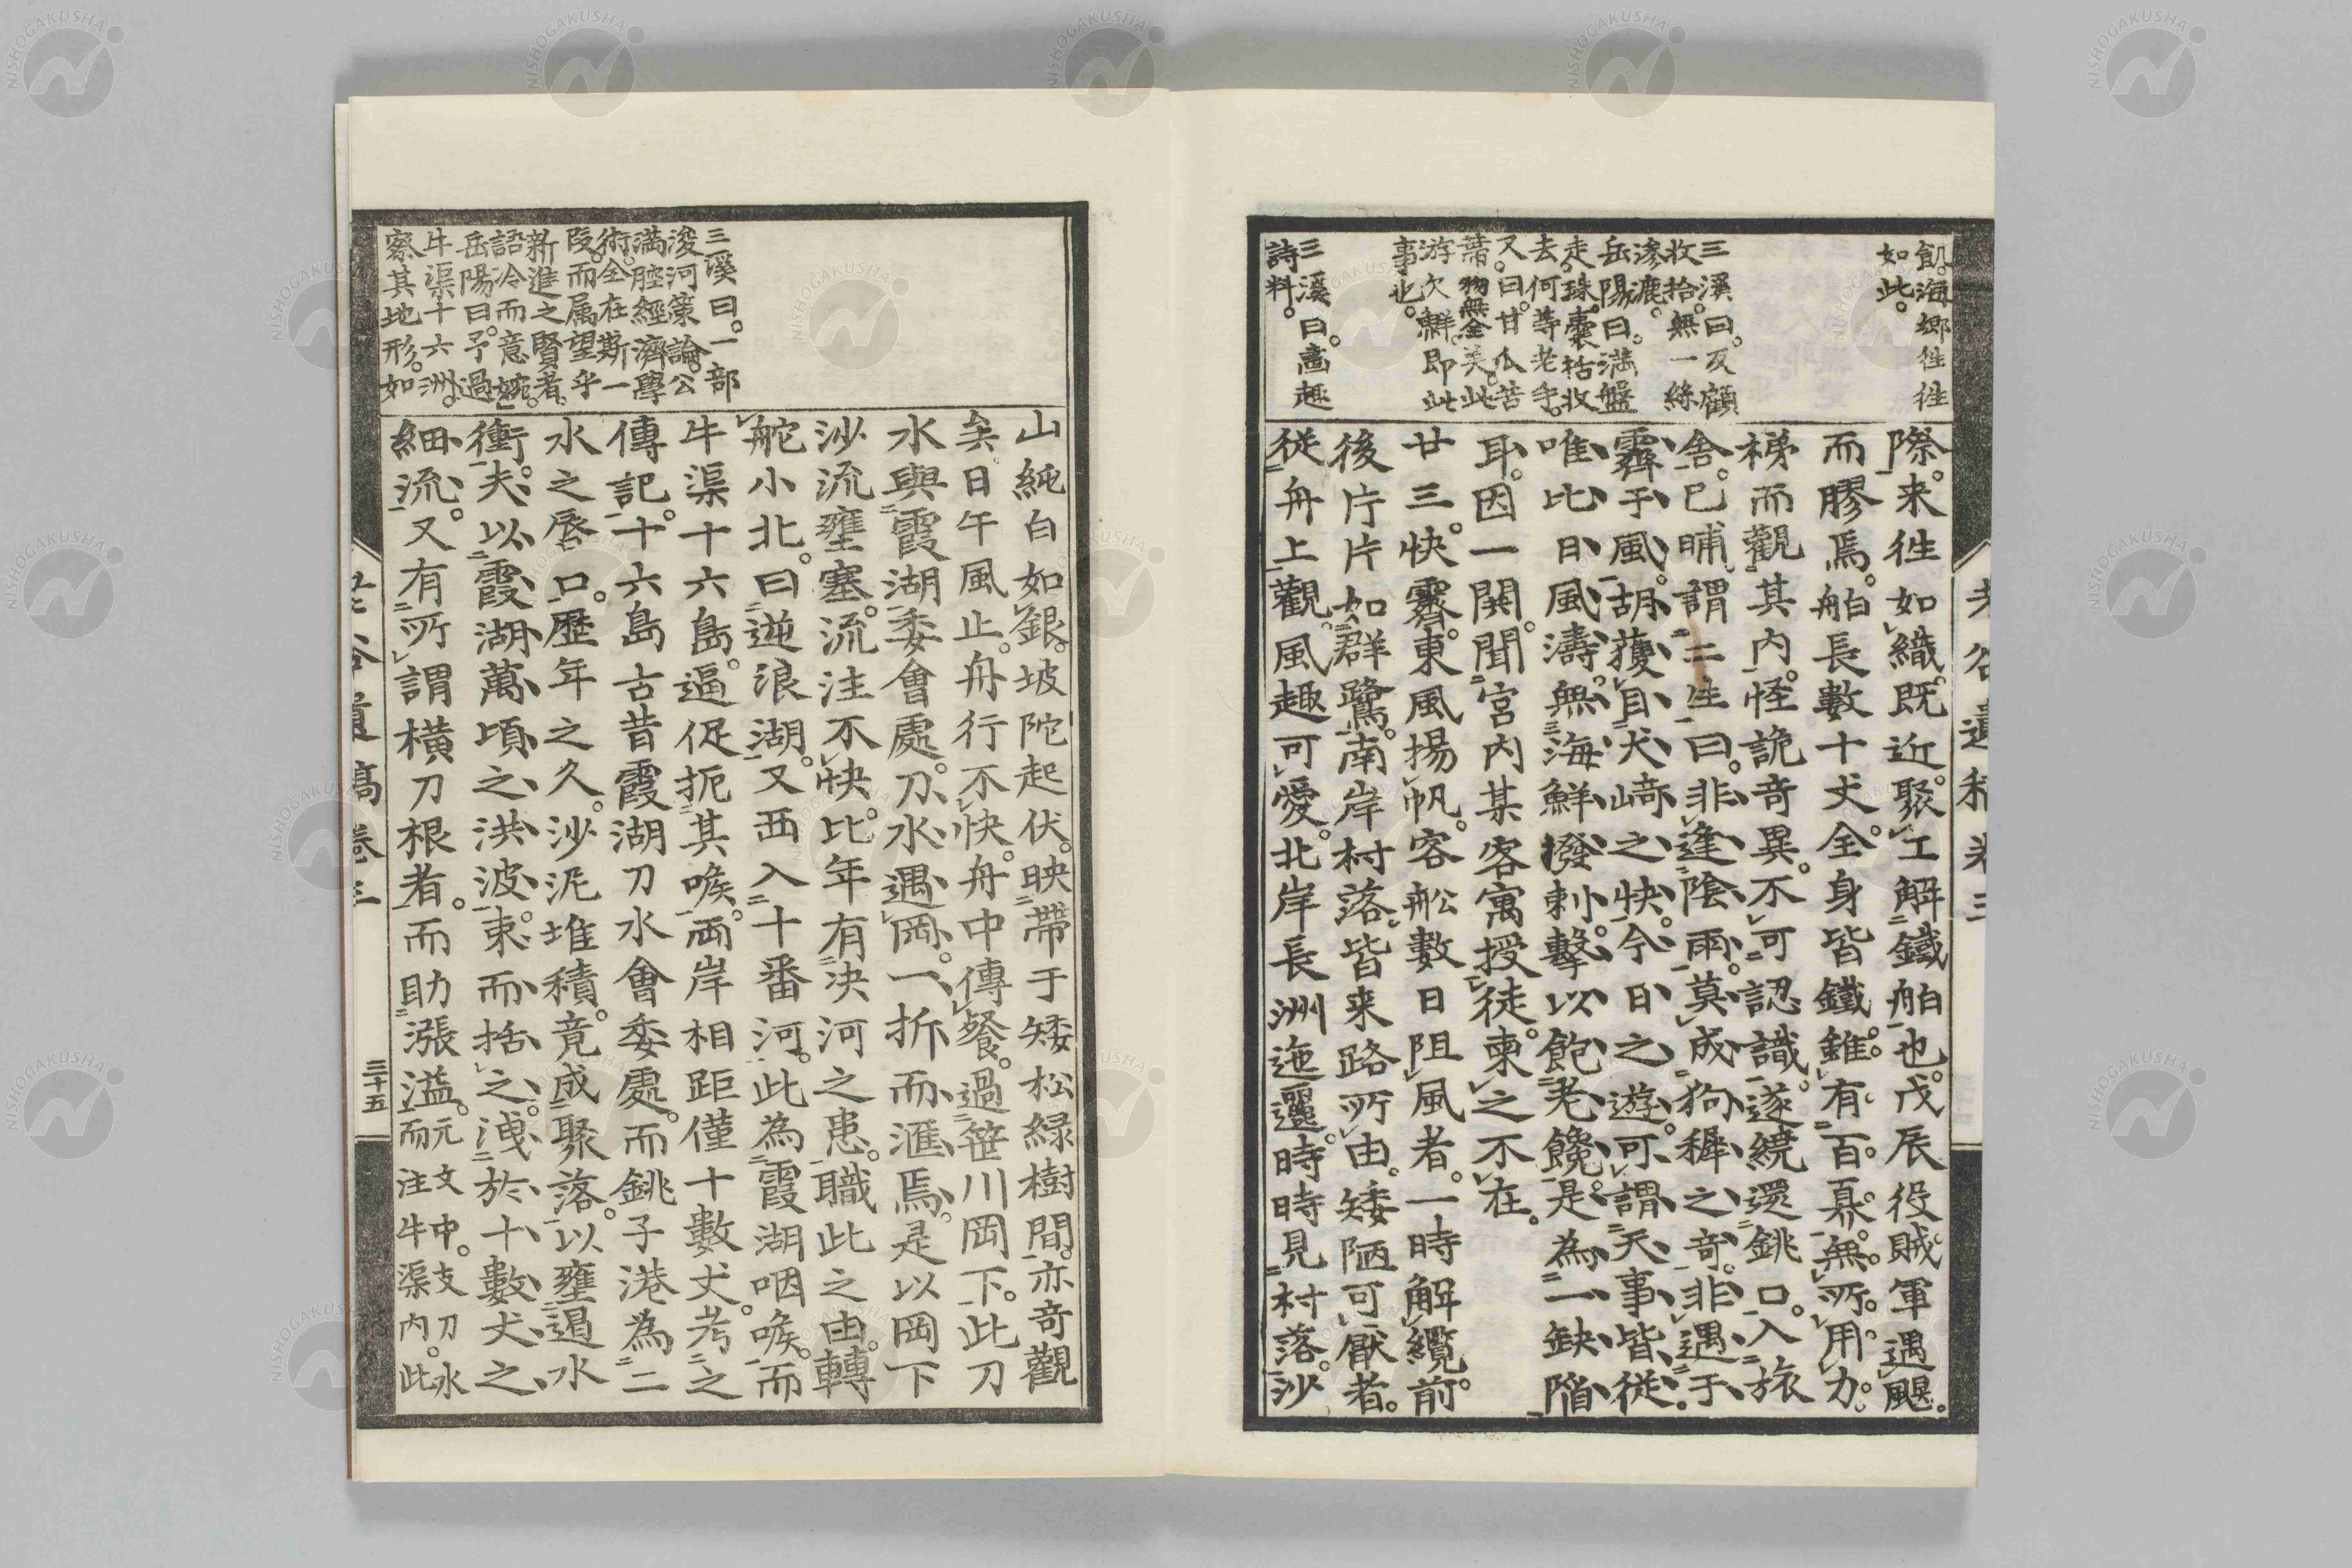 飢。海郷徃徃
如此。
三溪曰。反顧
收拾。無一絲
滲漉。
岳陽曰。滿盤
走珠。囊括收
去。何等老手。
又曰。甘瓜苦
蔕。物無全美。此
游欠鮮。即此
事也。
三溪曰。畵趣
詩料。
際。来徃如織。既近。聚工解鐵舶也。戊辰役賊軍遇颶。
而膠焉。舶長數十丈。全身皆鐵。錐有百鼎。無所用力。
梯而觀其内。怪詭奇異。不可認識。遂繞還銚口。入旅
舎。已晡。謂二生曰。非逢陰雨。莫成狗穉之奇。非遇于
霽于風。胡蕧目犬﨑之快。今日之遊。可謂天事皆従。
唯比日風濤。無海鮮撥刺。擊以飽老饞。是為一缺陷
耳。因一閧。聞宮内某客寓授徒。柬之不在。
廿三。快霽。東風揚帆。客舩數日阻風者。一時解纜。前
後片片如群鷺。南岸村落。皆来路所由。矮陋可厭者。
従舟上觀。風趣可愛。北岸長洲迤邐。時時見村落。沙
三溪曰。一部
浚河策論。公
滿腔經濟學
術。全在斯一
段。而属望乎
新進之賢者。
語冷而意婉。
岳陽曰。予過
牛渠十六洲。
察其地形。如
山純白如銀。坡陀起伏。映帶于矮松緑樹間。亦奇觀
矣。日午風止。舟行不快。舟中傳餐。過笹川岡下。此刀
水與霞湖委會處。刀水遇岡。一折而滙焉。是以岡下
沙流壅塞。流注不快。比年有决河之患。職此之由。轉
舵小北。曰逆浪湖。又西入十番河。此為霞湖咽喉。而
牛渠十六島。逼促扼其喉。両岸相距僅十數丈。考之
傳記。十六島古昔霞湖刀水會委處。而銚子港為二
水之唇口。歴年之久。沙泥堆積。竟成聚落。以壅遏水
衝。夫以霞湖萬頃之洪波。束而括之。洩於十數丈之
細流。又有所謂横刀根者。而助漲溢。元文中。支刀水
而注牛渠内。此
三十五